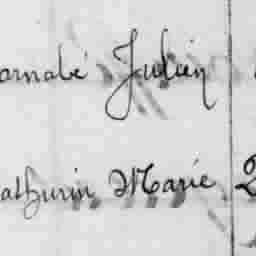 arnabé Julien
athurin Marie 2